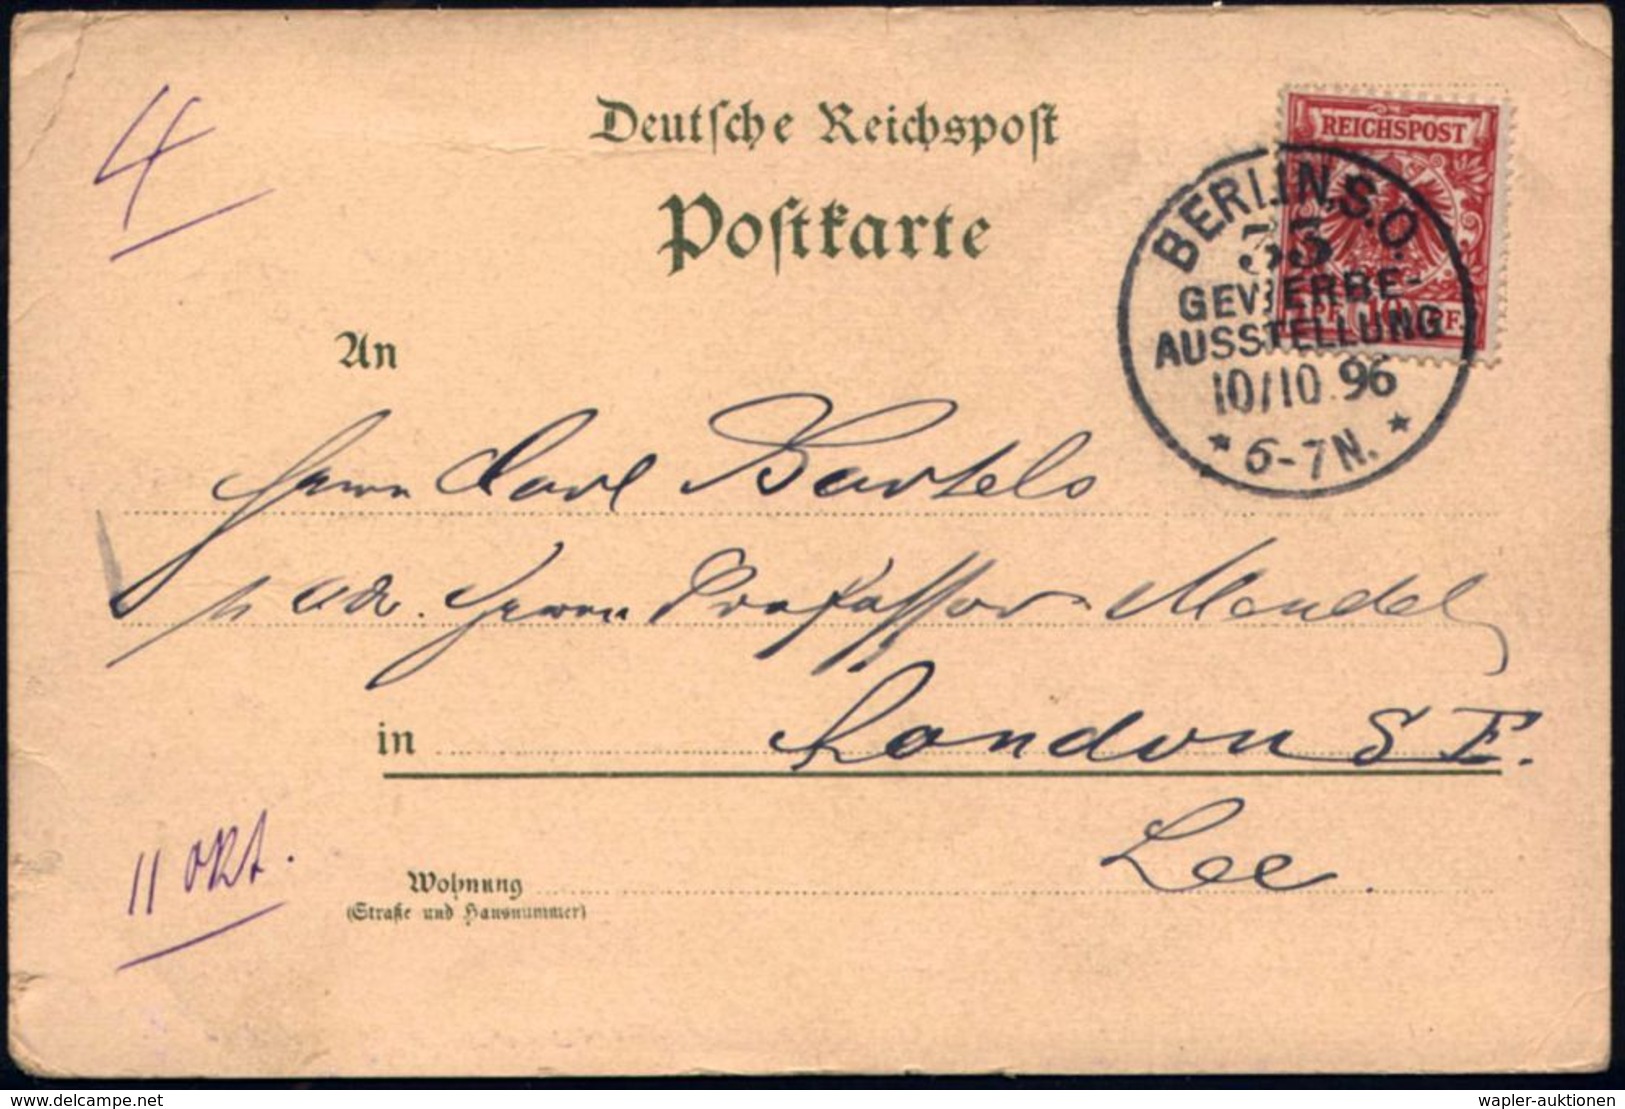 4
Deutsche Reichspost
Postkarte
REICHSPOST
PF. 10 PF.
BERLIN, S.O.
33
GEWERBE-
AUSSTELLUNG
10/10.96
* 6-7N. *
An
Herrn Carl Bartels
p. adr. Herrn Professor Mendel
in London S E.
Lee.
11 Okt.
Wohnung
(Straße und Hausnummer)
www.delcampe.net
wapler-auktionen